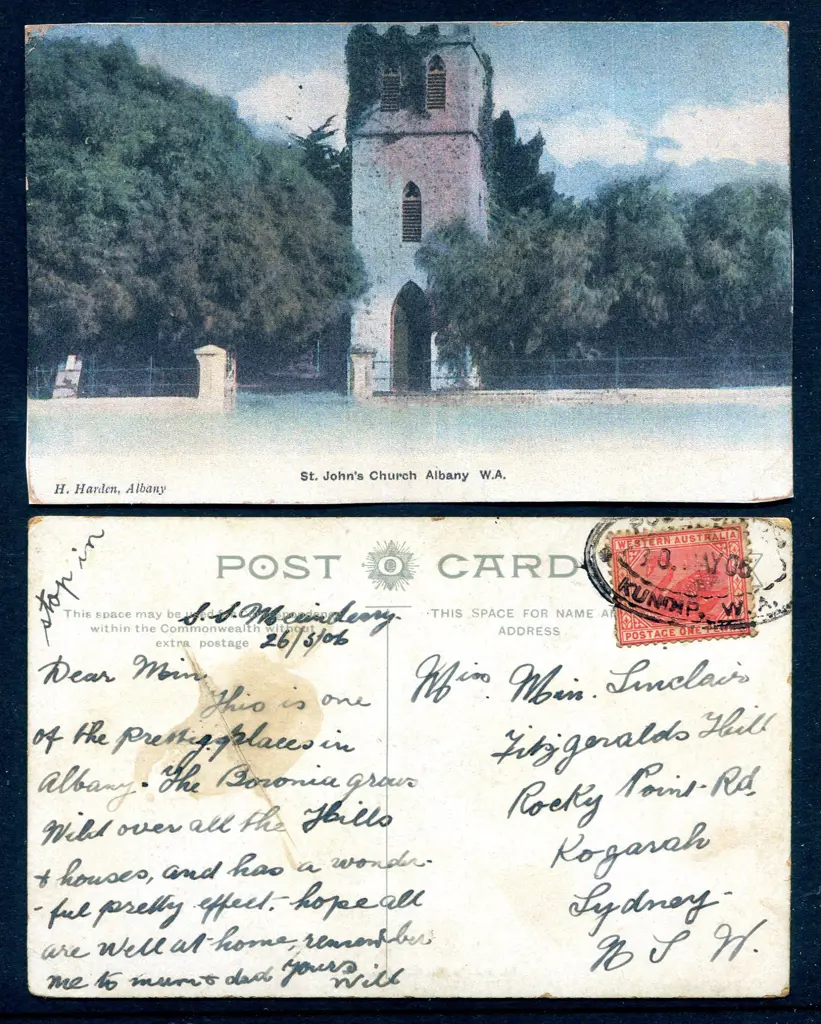 St. John's Church Albany W.A.
H. Harden, Albany
stop in
POST CARD
This space may be used
within the Commonwealth without
extra postage
THIS SPACE FOR NAME AN
ADDRESS
S. S.
26/5/06
WESTERN AUSTRALIA
POSTAGE ONE PENNY
06
KUNDIP. W.A.
Dear Min.
This is one
of the prettiest places in
Albany. The Boronia grows
Wild over all the Hills
& houses, and has a wonder-
-ful pretty effect. hope all
are Well at home, remember
me to mum & dad Yours
Will
Miss. Min. Sinclair
Fitzgeralds Hill
Rocky Point Rd.
Kogarah
Sydney
N S W.